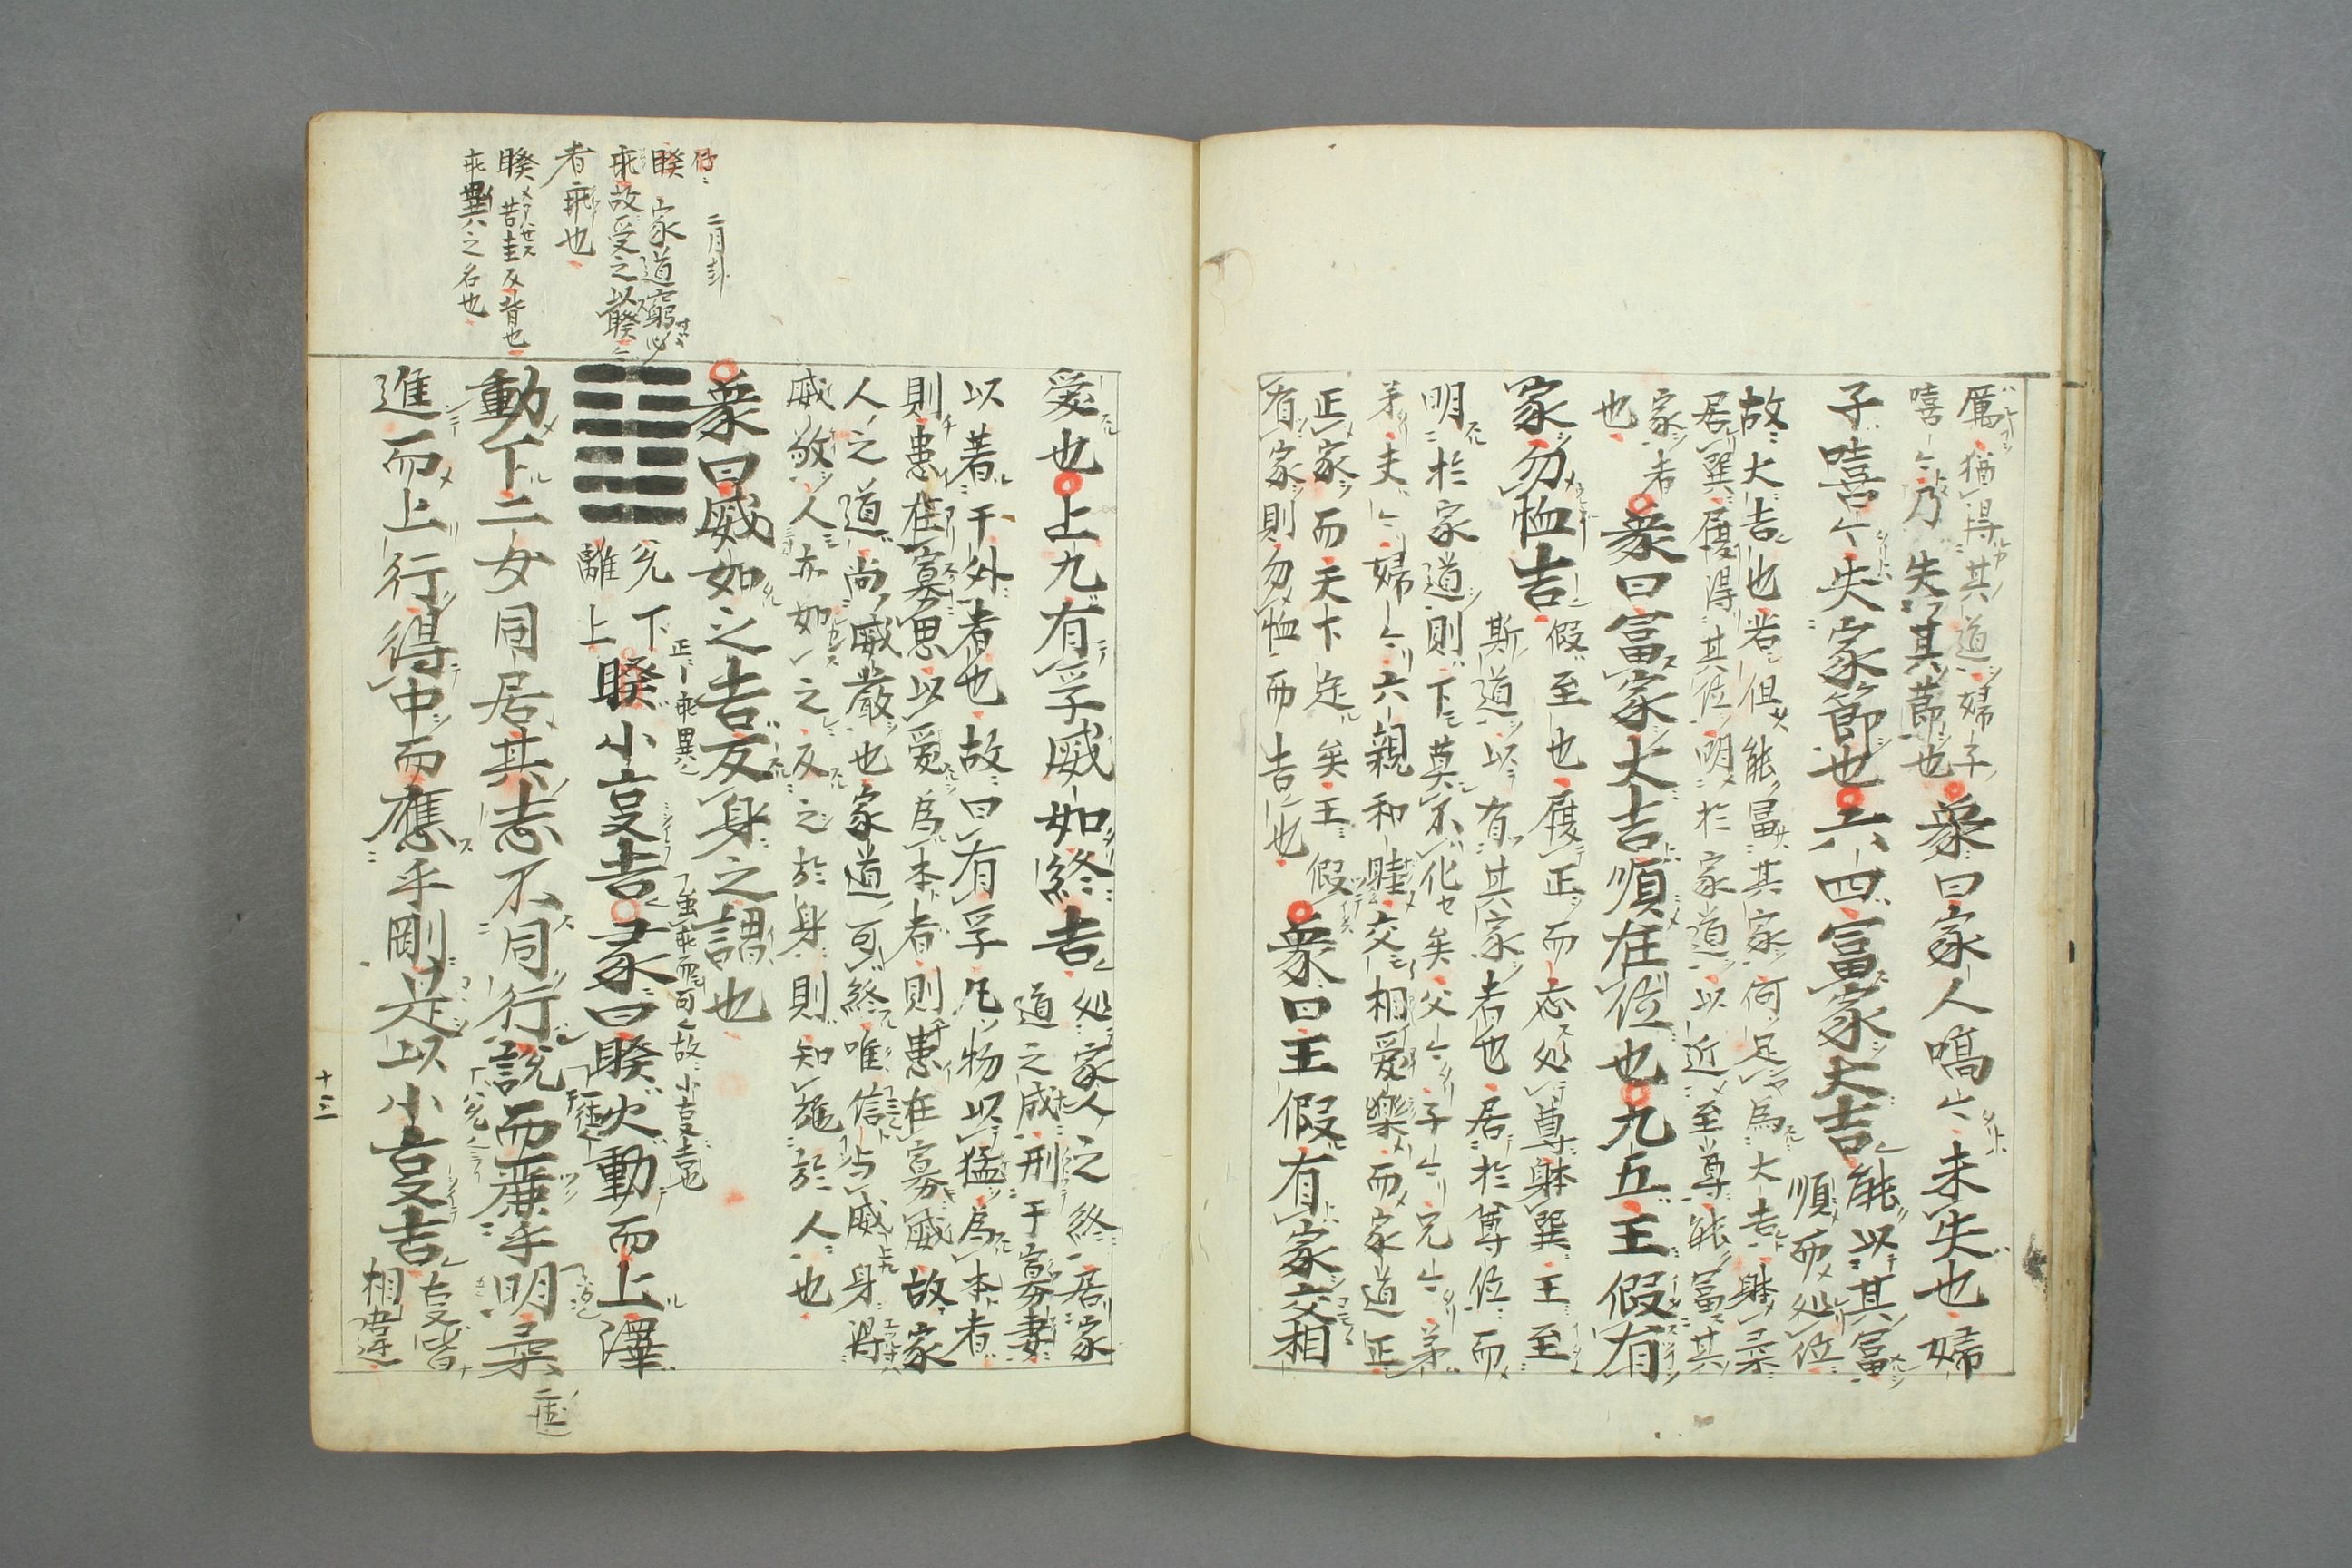 厲猶得其道婦子
嘻〻乃失其莭也象曰家人嗃〻未失也婦
子嘻〻失家節也六四冨家大吉能以其冨
順而処位
故大吉也若但能冨其家何足為大吉躰柔
居巽履得其位明於家道以近至尊能冨其
家者
也象曰冨家大吉順在位也九五王假有
家勿恤吉假至也履正而応処尊躰巽王至
斯道以有其家者也居於尊位而
明於家道則下莫不化矣父〻子〻兄〻弟
弟夫〻婦〻六親和睦交相愛樂而家道正
正家而天下定矣王假
有家則勿恤而吉也
象曰王假有家交相
愛也上九有孚威如終吉処家人之終居家
道之成刑于寡妻
以著于外者也故曰有孚凡物以猛為本者
則患在寡恩以愛為本者則患在寡威故家
人之道尚威嚴也家道可終唯信与威身得
威敬人亦如之反之於身則知施於人也
象曰威如之吉反身之謂也
兊下
離上
睽小亨吉彖曰睽火動而上澤
動下二女同居其志不同行說而麗乎明柔
進而上行得中而應乎剛是以小亨吉
亨皆
相違
二月卦
睽 家道窮必
乖故受之以睽〻
者乖也
睽 苦圭反背也
乖異之名也
正乖異
虽乖而可故小亨吉也
十三